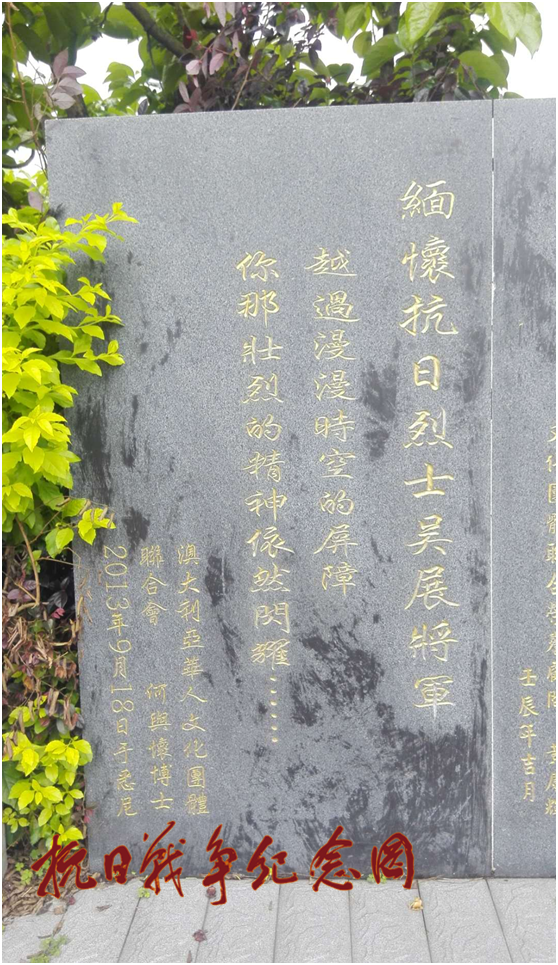 壬辰年吉月
緬懷抗日烈士吴展將軍
越過漫漫時空的屏障
你那壯烈的精神依然閃耀……
澳大利亞華人文化團體
聯合會　何與懷博士
2013年9月18日于悉尼
抗日战争纪念网